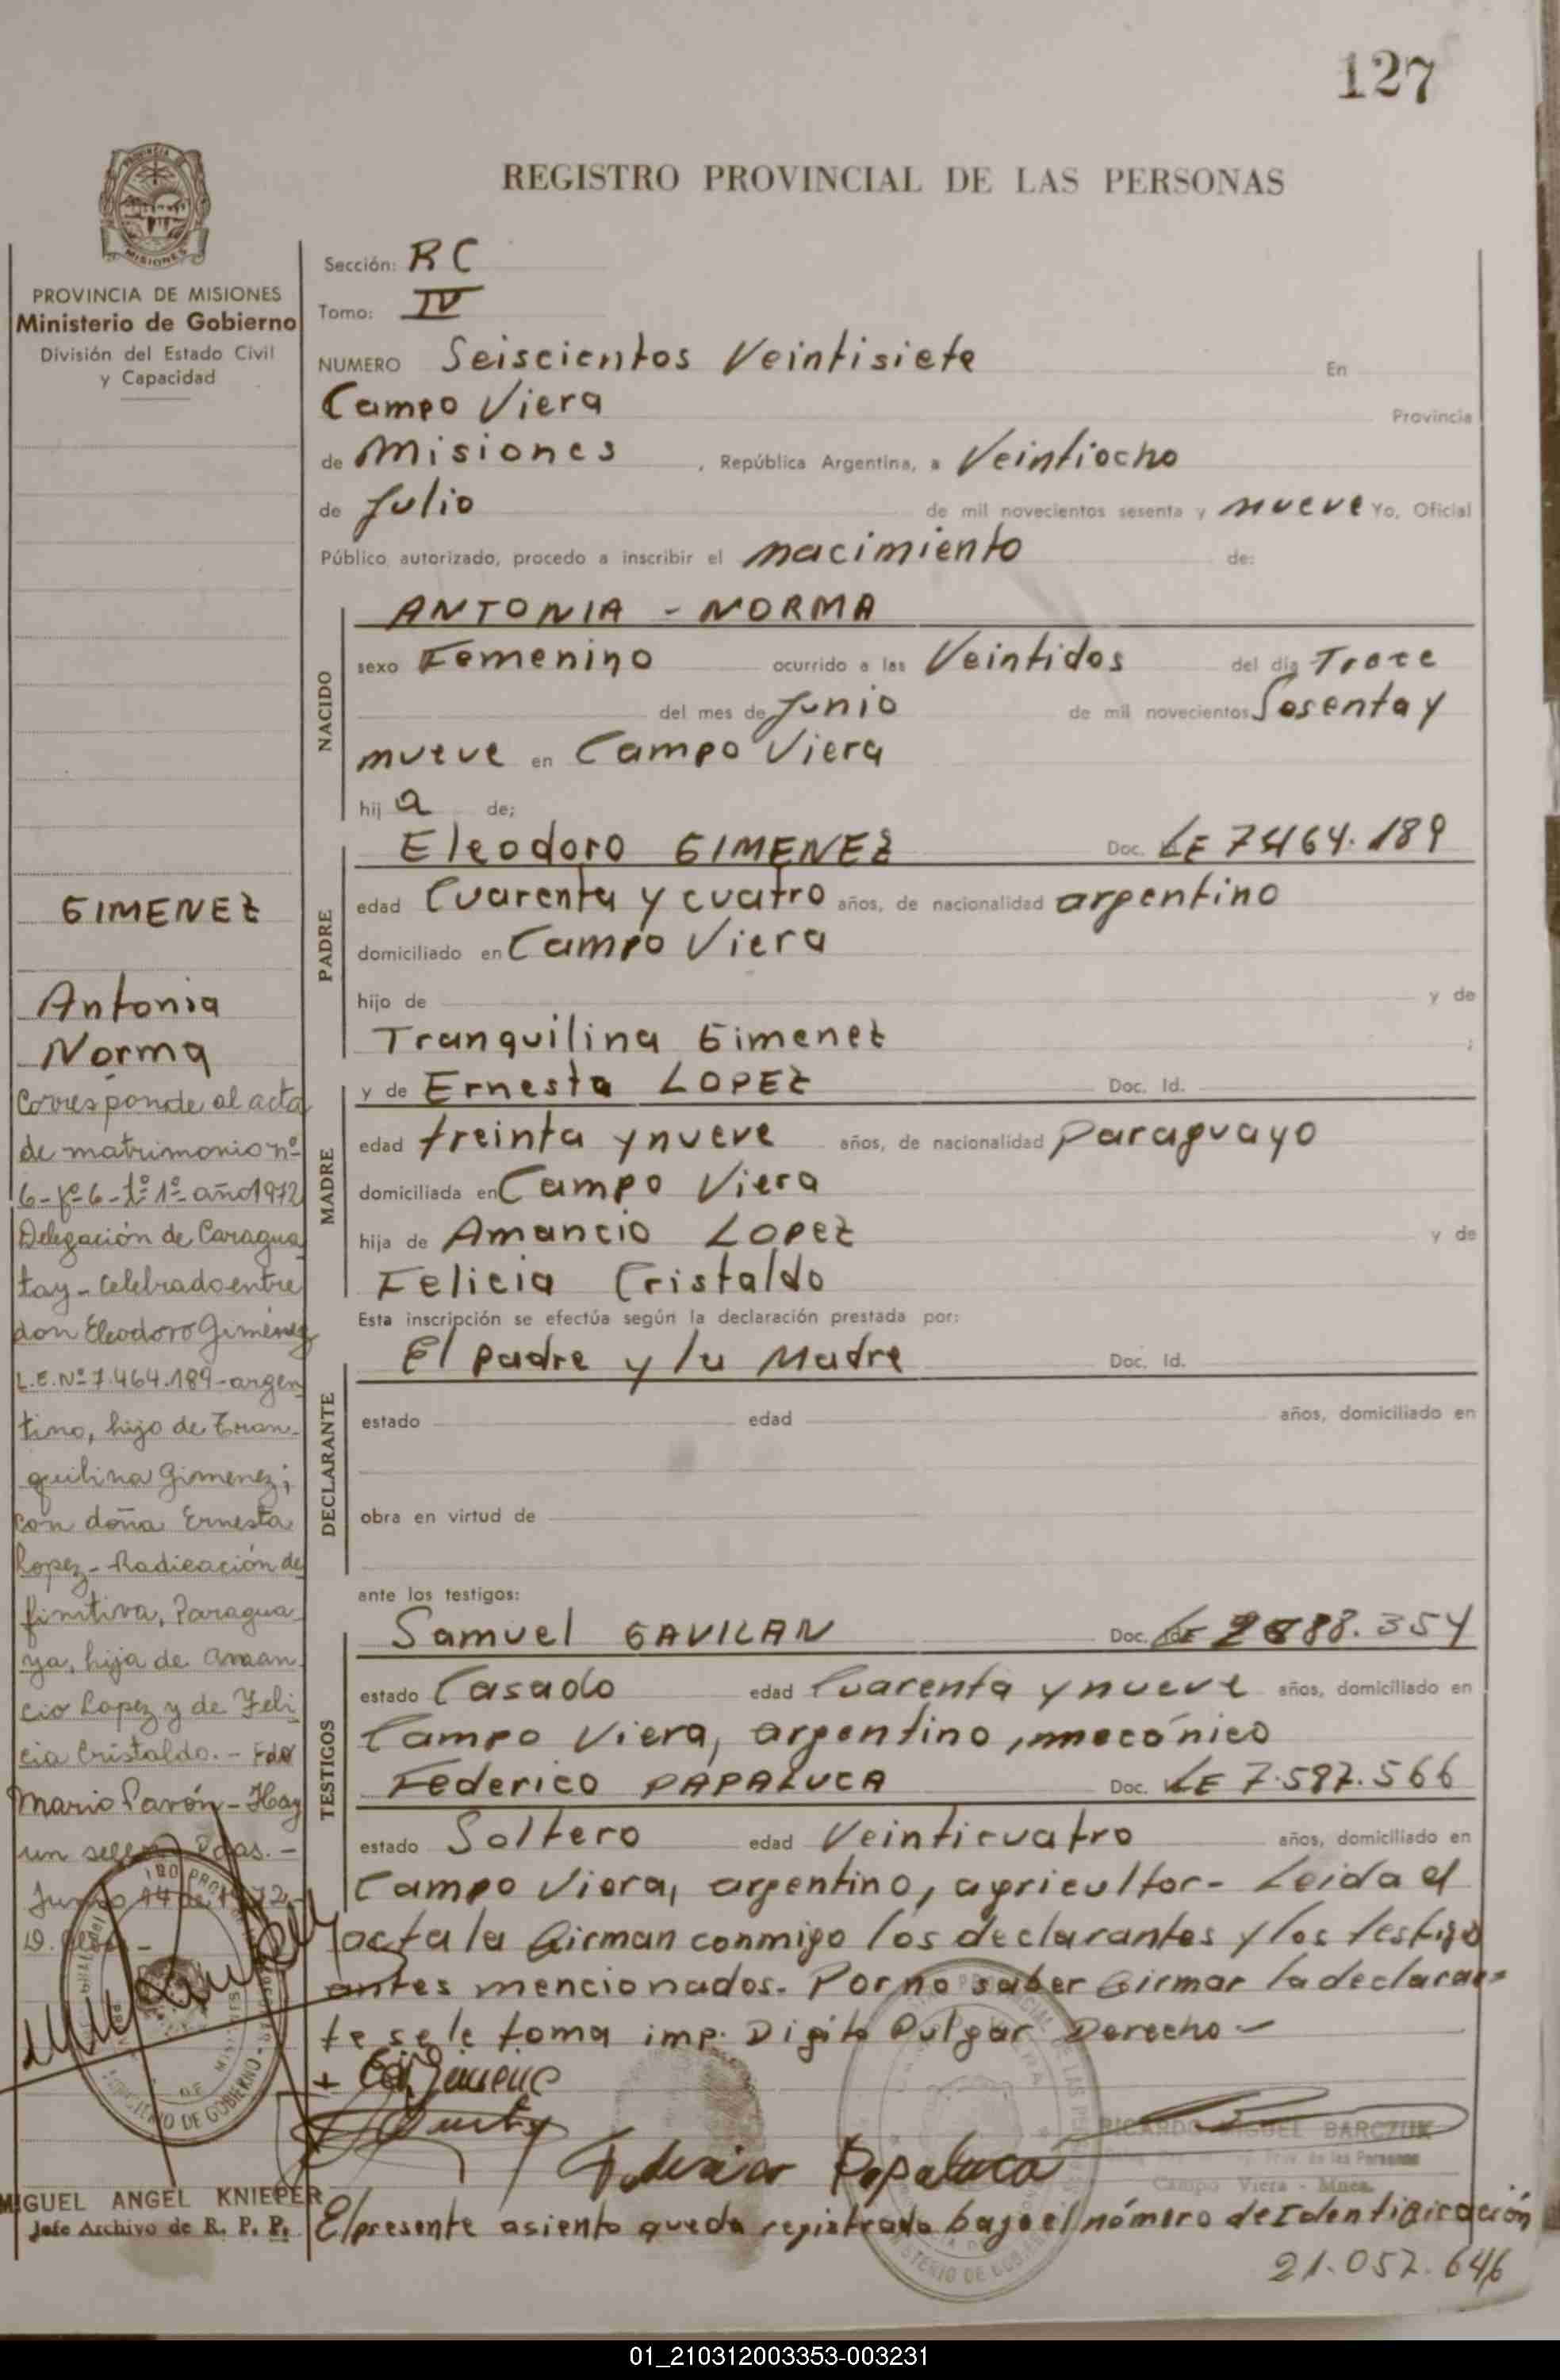 127
REGISTRO PROVINCIAL DE LAS PERSONAS
PROVINCIA DE MISIONES
Ministerio de Gobierno
División del Estado Civil
y Capacidad
Sección: RC
Tomo: IV
NUMERO Seiscientos Veintisiete En
Campo Viera Provincia
de Misiones , República Argentina, a Veintiocho
de Julio de mil novecientos sesenta y nueve Yo, Oficial
Público autorizado, procedo a inscribir el nacimiento de:
NACIDO
ANTONIA - NORMA
sexo Femenino ocurrido a las Veintidos del día Trece
del mes de Junio de mil novecientos Sesenta y
nueve en Campo Viera
hij a de;
PADRE
Eleodoro GIMENEZ Doc. LE 7.464.189
edad Cuarenta y cuatro años, de nacionalidad argentino
domiciliado en Campo Viera
hijo de y de
Tranquilina Gimenez ;
MADRE
y de Ernesta LOPEZ Doc. Id.
edad treinta y nueve años, de nacionalidad Paraguayo
domiciliada en Campo Viera
hija de Amancio LOPEZ y de
Felicia Cristaldo
Esta inscripción se efectúa según la declaración prestada por:
DECLARANTE
El padre y la Madre Doc. Id.
estado edad años, domiciliado en
obra en virtud de
ante los testigos:
TESTIGOS
Samuel GAVILAN Doc. 88.354
estado Casado edad Cuarenta y nueve años, domiciliado en
Campo Viera, argentino, mecánico
Federico PAPALUCA Doc. LE 7.587.566
estado Soltero edad Veinticuatro años, domiciliado en
Campo Viera, argentino, agricultor - Leida el
acta la firman conmigo los declarantes y los testigo
antes mencionados. Por no saber firmar la declaran-
te se le toma imp. Digito Pulgar Derecho -
Federico Papaluca
RICARDO MIGUEL BARCZUK
Campo Viera - Mnes.
El presente asiento queda registrado bajo el número de Identificación
21.057.646
GIMENEZ
Antonia
Norma
Corresponde al acta
de matrimonio nº
6-fº6-tº1º-año1972
Delegación de Caragua
tay - Celebrado entre
don Eleodoro Gimenez
L.E.Nº7.464.189-argen
tino, hijo de Tran-
quilina Gimenez;
con doña Ernesta
Lopez - Radicación de
finitiva, Paragua
ya, hija de Aman
cio Lopez y de Feli
cia Cristaldo. - Fdo
Mario Pavón - Hay
un sello Pdas. -
Junio 14 de 1972
MIGUEL ANGEL KNIEPER
Jefe Archivo de R. P. P.
01_210312003353-003231